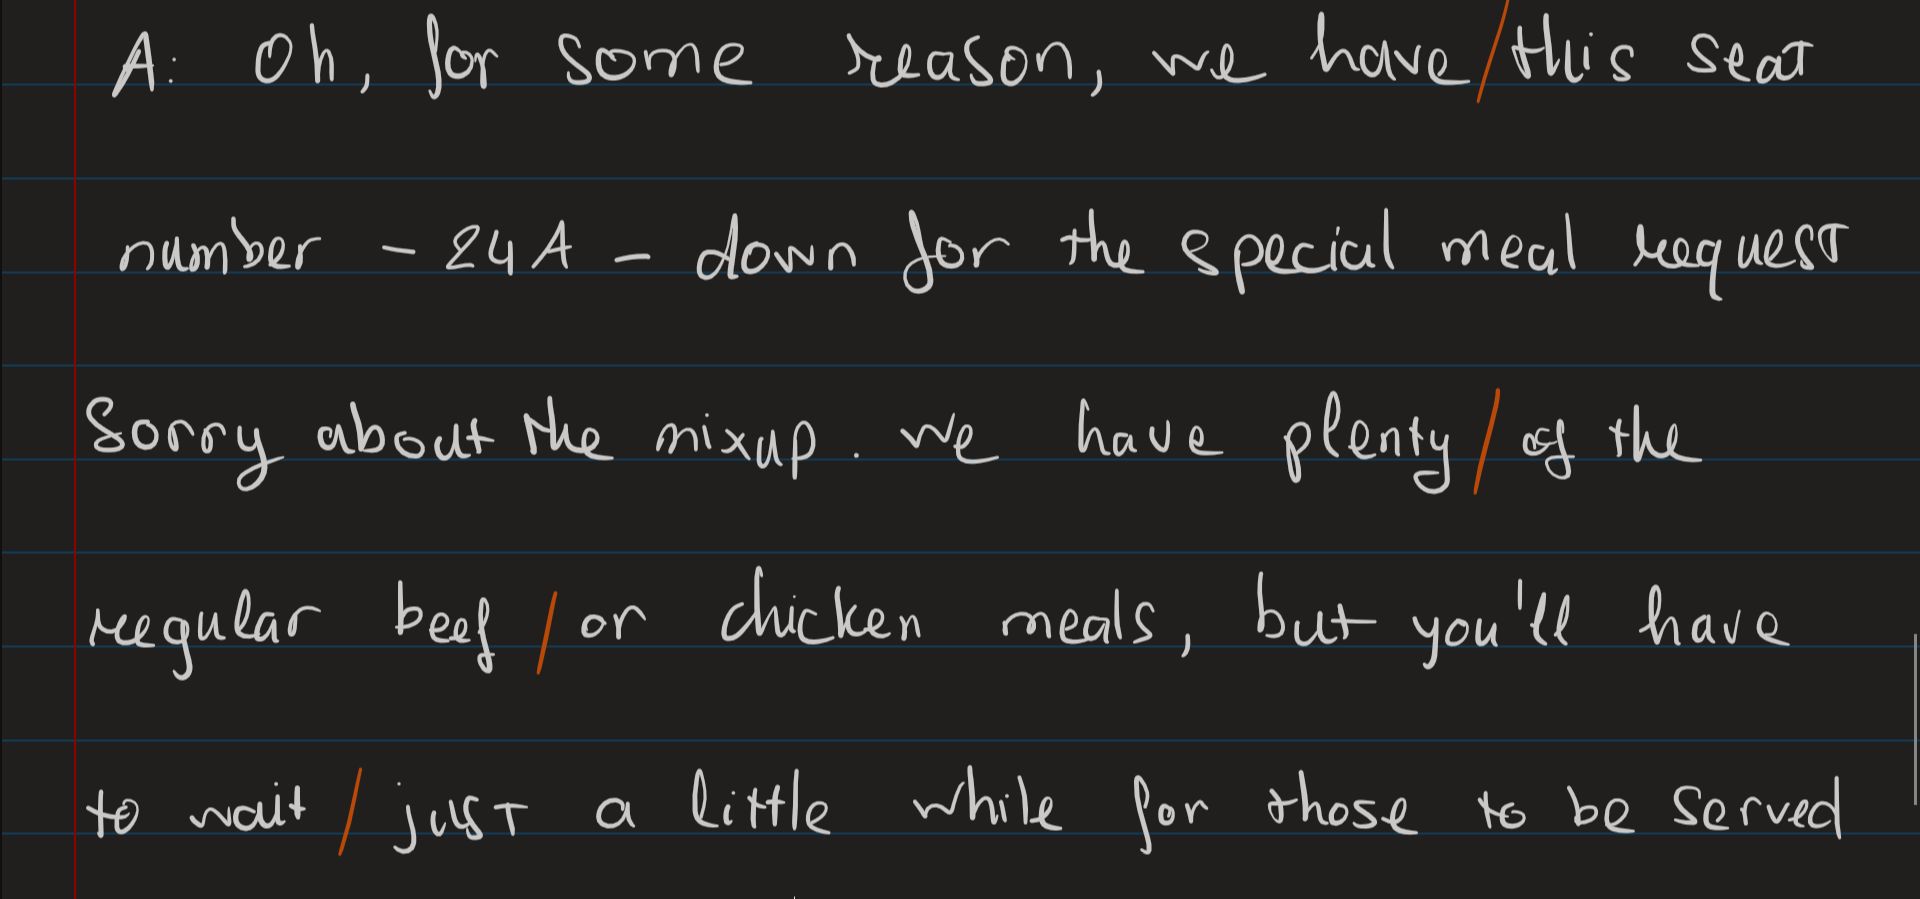 A: Oh, for some reason, we have / this seat
number - 24A - down for the special meal request
Sorry about the mixup. we have plenty / of the
regular beef / or chicken meals, but you'll have
to wait / just a little while for those to be served